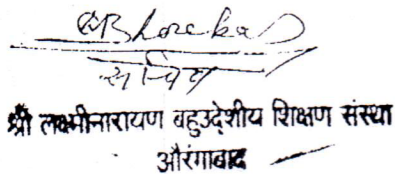 सचिव
श्री लक्ष्मीनारायण बहुउद्देशीय शिक्षण संस्था
औरंगाबाद